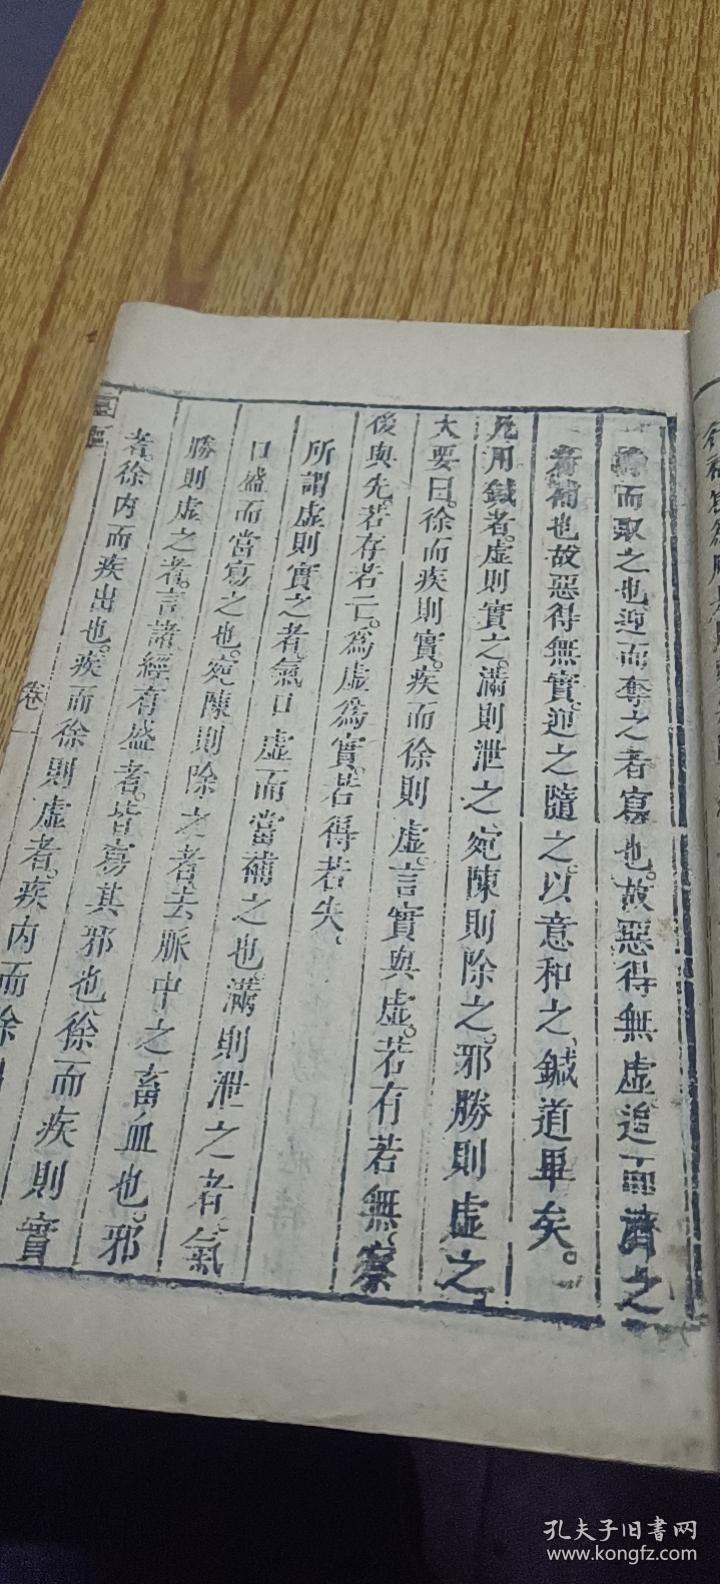 而取之也迎而奪之者寫也故惡得無虛追而濟之
者補也故惡得無實迎之隨之以意和之鍼道畢矣。
凡用鍼者。虛則實之。滿則泄之。宛陳則除之。邪勝則虛之
大要曰。徐而疾則實。疾而徐則虛。言實與虛。若有若無。察
後與先。若存若亡。為虛為實。若得若失。
所謂虛則實之者。氣口虛而當補之也。滿則泄之者。氣
口盛而當寫之也。宛陳則除之者。去脈中之畜血也。邪
勝則虛之者。言諸經有盛者。皆寫其邪也。徐而疾則實
者。徐內而疾出也。疾而徐則虛者。疾內而徐
卷一
孔夫子旧书网
www.kongfz.com